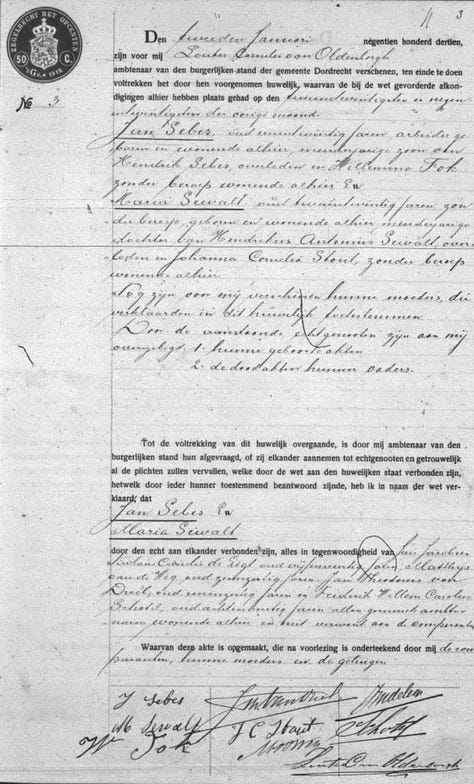 ZEGELRECHT MET OPCENTEN
50 C.
3
No 3.
Den tweeden Januari negentien honderd dertien,
zijn voor mij Louter Cornelis van Oldenborgh
ambtenaar van den burgerlijken stand der gemeente Dordrecht verschenen, ten einde te doen
voltrekken het door hen voorgenomen huwelijk, waarvan de bij de wet gevorderde afkon-
digingen alhier hebben plaats gehad op den en negen
entwintigsten der vorige maand.
Jan Sebes, oud jaren, arbeider ge-
boren en wonende alhier, meerderjarige zoon van
Hendrik Sebes, overleden en Willemina Fok
zonder beroep wonende alhier En
Maria Sewalt, oud jaren, zon-
der beroep, geboren en wonende alhier meerderjarige
dochter van Hendrikus Antonius Sewalt, over-
leden en Johanna Cornelia Stout, zonder beroep
wonende alhier
Nog zijn voor mij verschenen hunne moeders, die
verklaarden in dit huwelijk toetestemmen
Door de aanstaande echtgenooten zijn aan mij
overgelegd 1. hunne geboorteakten
2. de doodakten hunner vaders.
Tot de voltrekking van dit huwelijk overgaande, is door mij ambtenaar van den
burgerlijken stand hun afgevraagd, of zij elkander aannemen tot echtgenooten en getrouwelijk
al de plichten zullen vervullen, welke door de wet aan den huwelijken staat verbonden zijn,
hetwelk door ieder hunner toestemmend beantwoord zijnde, heb ik in naam der wet ver-
klaard, dat
Jan Sebes En
Maria Sewalt
door den echt aan elkander verbonden zijn, alles in tegenwoordigheid van Jacobus
Cornelis de jaren, Matthijs
van de Weg, oud jaren, Jan Theodorus van
oud jaren en Frederik Willem Carolus
Schotel, oud achtentwintig jaren allen gemeente ambte-
naren wonende alhier en niet verwant aan de comparanten
Waarvan deze akte is opgemaakt, die na voorlezing is onderteekend door mij de com-
paranten, hunne moeders en de getuigen
J Sebes
M Sewalt
W Fok
J C Stout